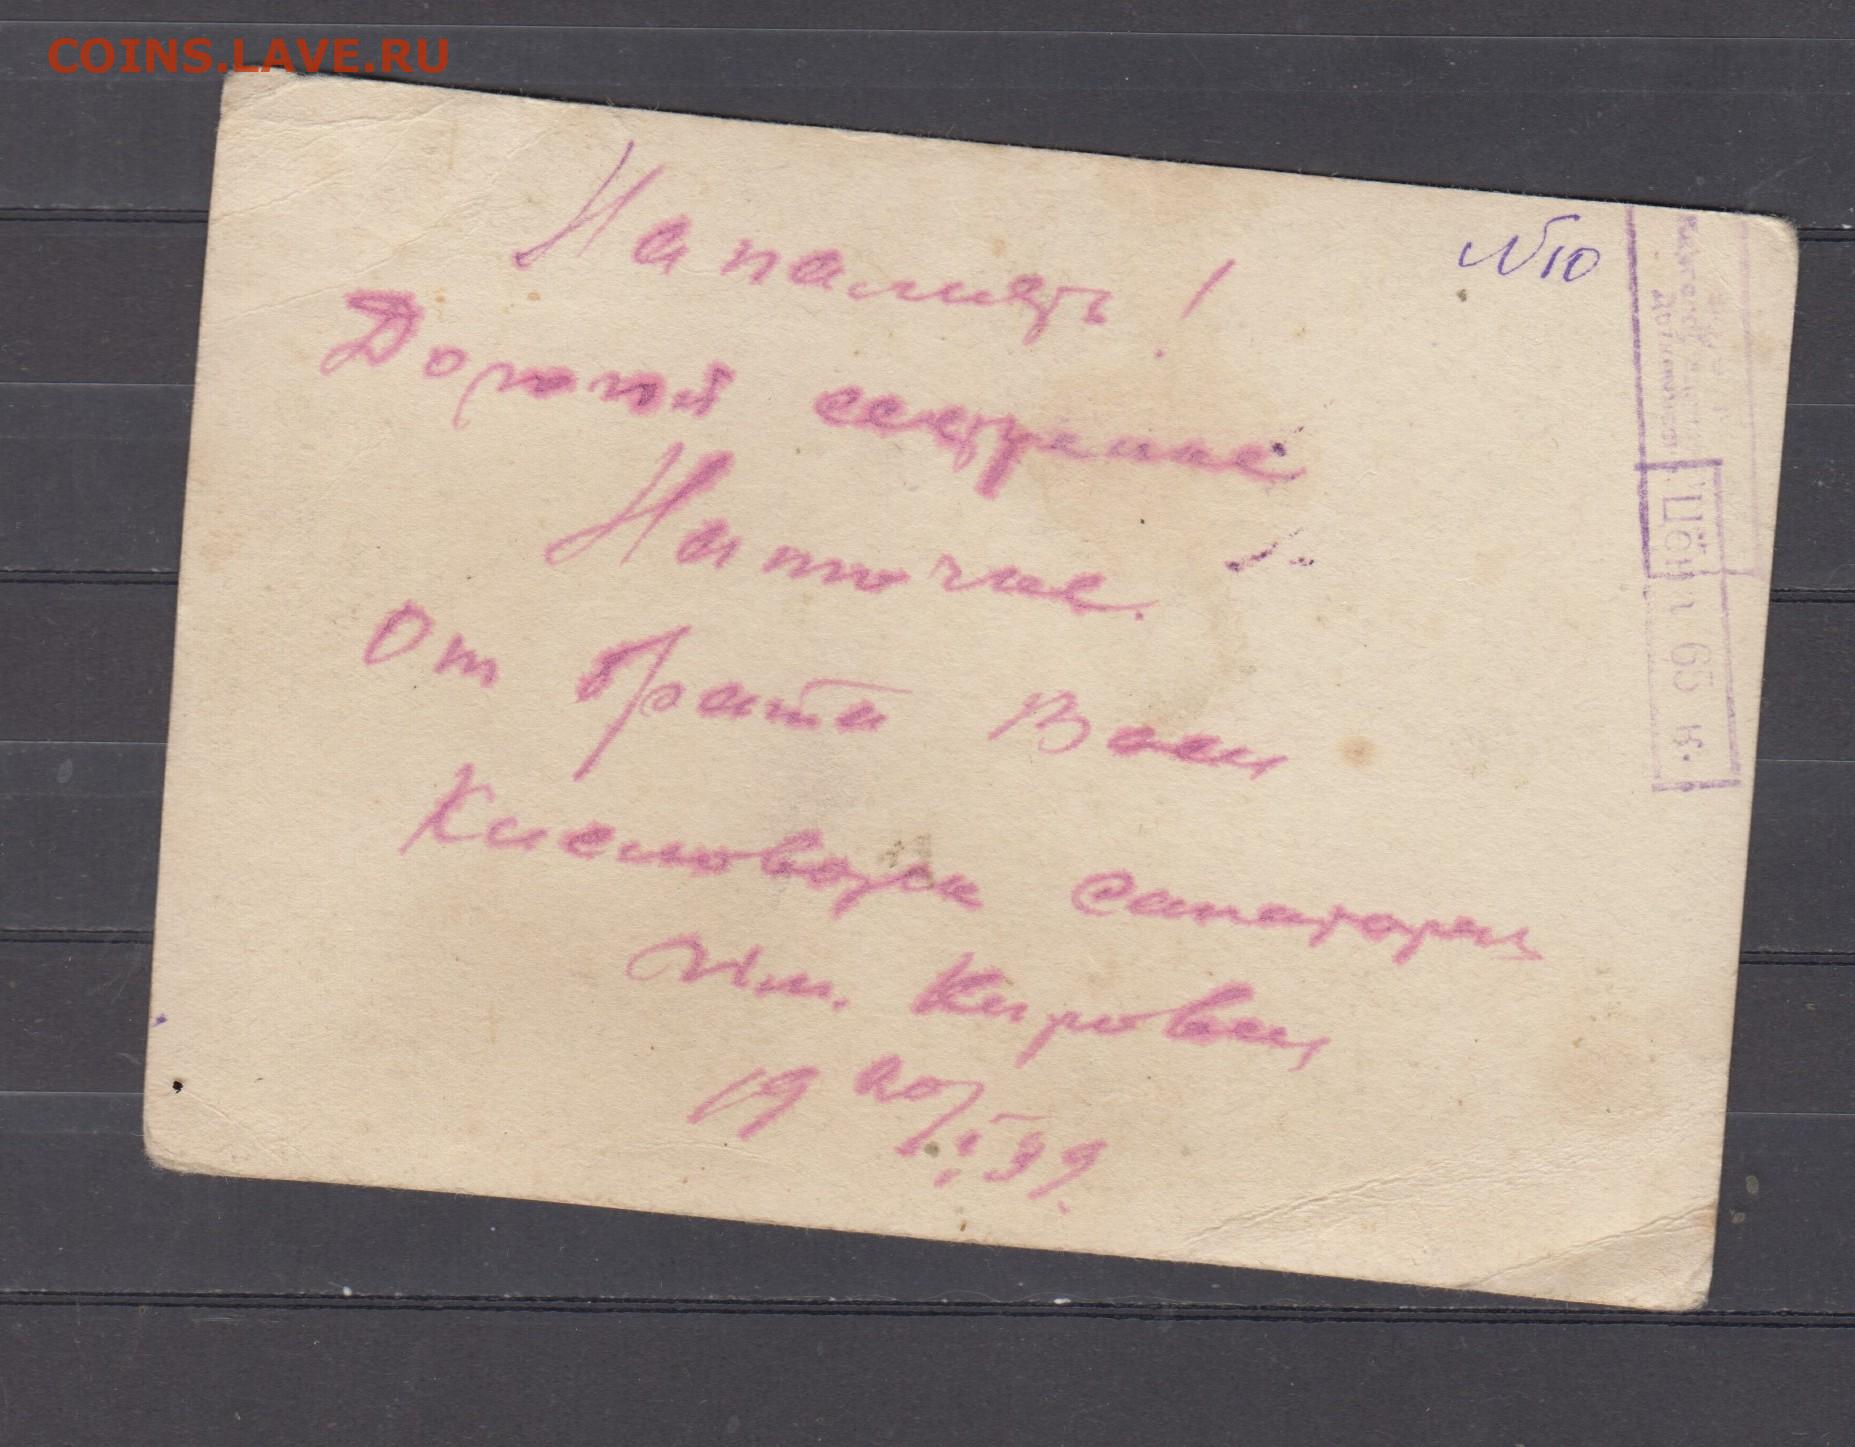 COINS.LAVE.RU
На память!
№10
Дорогой сестренке
Наточке.
От брата Васи
Кисловодск санаторий
Им. Кирова
19 20/I 39.
Цена 65 к.